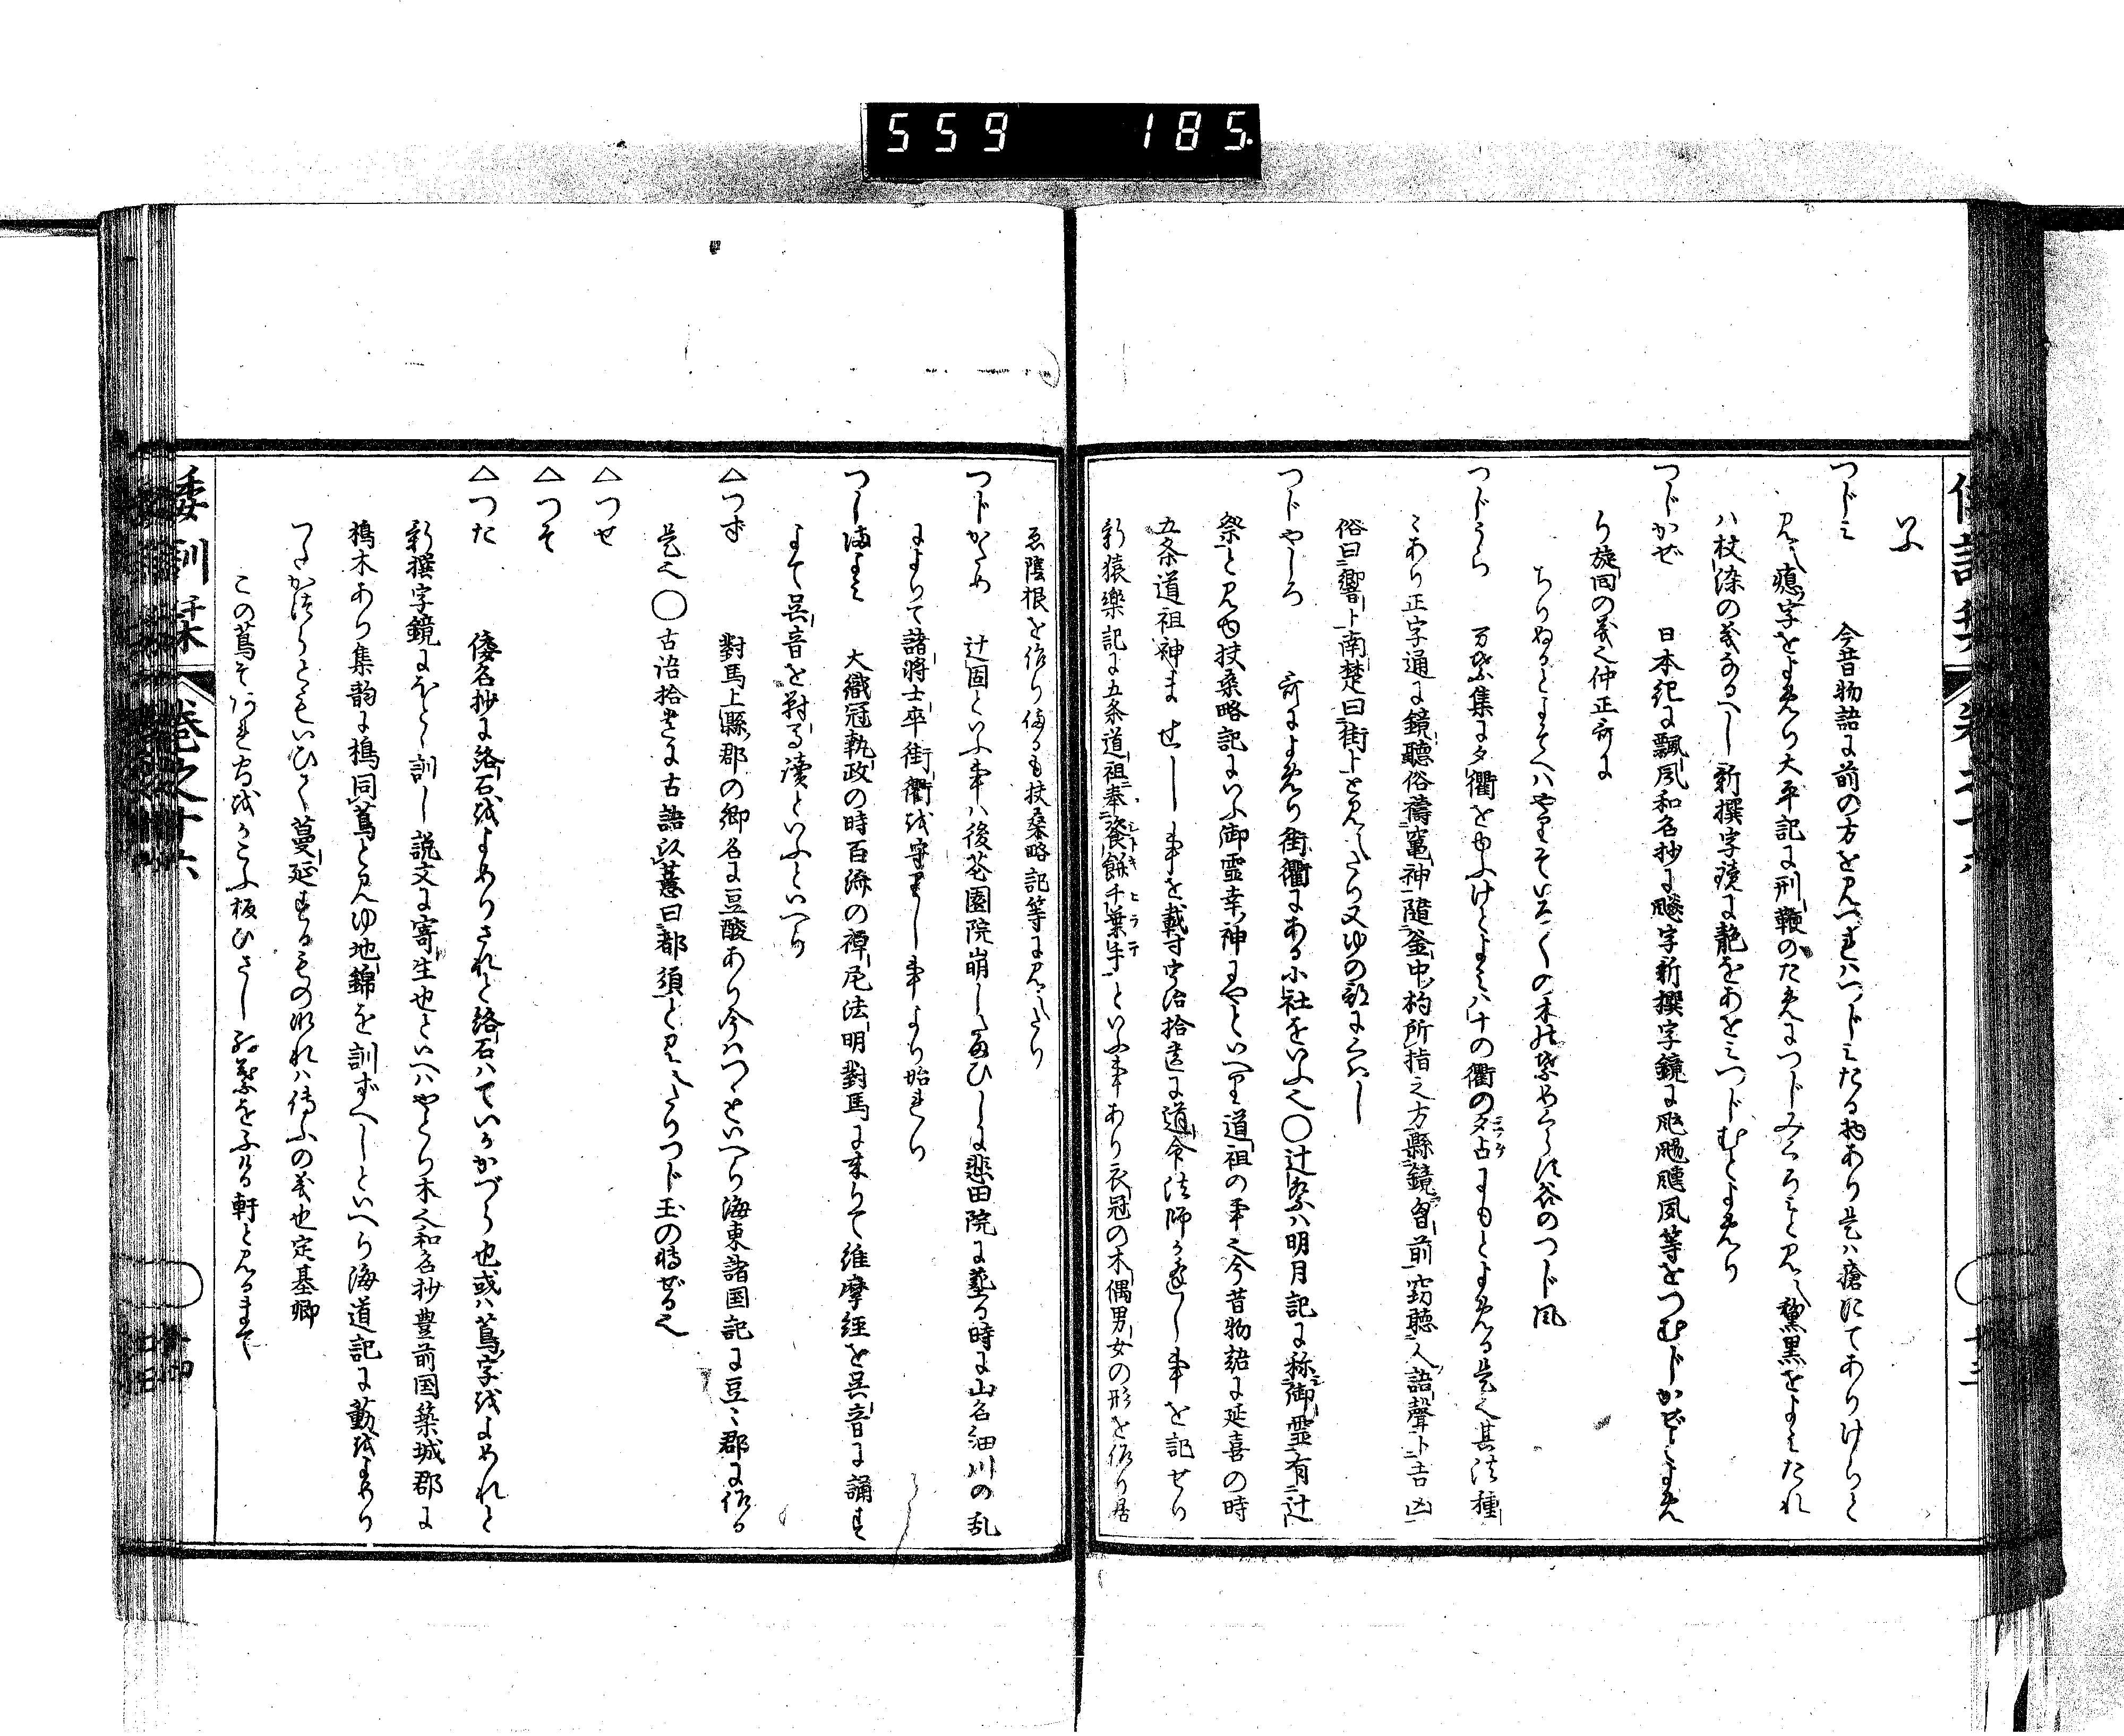 559 185.
いふ
つじみ 今昔物語に前の方を見つればつじみたる物あり是は瘡にてありけりと
見ゆ瘢字をよめり大平記に刑鞭のためにつじみくろみと見え黧黒をよみたれ
ハ杖漆の義なるへし新撰字鏡に靘をあをミつじむとよめり
つじかぜ 日本紀に飄風和名抄に飈字新撰字鏡に颮颺飃風等をつむじかぜとよめ
り旋回の義也仲正哥に
ちりぬるとよそへハやまそいろくの木の葉めくらす谷のつじ風
つじうら 万葉集に夕衢をゆふけとよミ八十の衢の夕占にもとよめる是也其法種
々あり正字通に鏡聽俗禱竃神隨釜中杓所指之方縣鏡匃前窃聽人語聲卜吉凶
俗曰響卜南楚曰街卜と見えたり又ゆの部に云へし
つじやしろ 哥によめり街衢にある小社をいふ也〇辻祭ハ明月記に称御霊有辻
祭と見ゆ扶桑略記にいふ御霊幸神にやといへり道祖の事也今昔物語に延喜の時
五条道祖神ましませし事を載す宇治拾遺に道命法師か逢し事を記せり
新猿樂記に五条道祖奉粢餅千葉手といふ事あり衣冠の木偶男女の形を作り居
ゑ陰根を作り備るも扶桑略記等に見えたり
つじかため 辻固といふ事ハ後花園院崩したまひしに悲田院に塟る時に山名細川の乱
によりて諸將士卒街衢を守りし事より始まれり
つしまよミ 大織冠執政の時百済の禅尼法明對馬に来りて維摩経を呉音に誦す
よて呉音を對馬讀といふといへり
△つす 對馬上縣郡の郷名に豆酸あり今ハつゝといへり海東諸国記に豆〻郡に作る
是也〇古语拾遺に古語以薏曰都須と見えたりつじ玉の時ぜる也
△つせ
△つそ
△つた 倭名抄に絡石をよめりされと絡石ハていかかづら也或ハ蔦字をよめれと
新撰字鏡にほとと訓し説文に寄生也といへハやとり木也和名抄豊前国築城郡に
樢木あり集韵に樢同蔦と見ゆ地錦を訓ずへしといへり海道記に蘍をよめり
つたかつらともいひて蔓延するものなれハ傳ふの義也定基卿
この蔦そはれる宿をかこふ板ひさし紅葉をふける軒と見るまて
倭訓栞 巻之十六